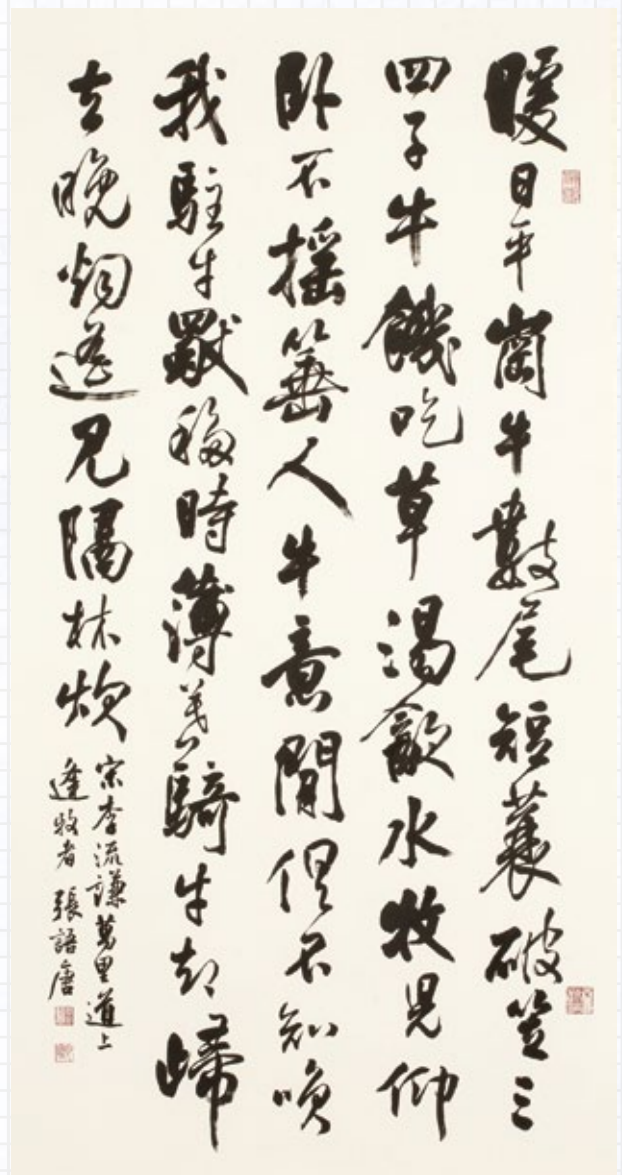 暖日平崗牛數尾短蓑破笠三
四子牛饑吃草渴飲水牧兒仰
臥不搖箠人牛意閒俱不知喚
我駐牛移時薄暮騎牛却歸
去晚烟遙見隔林炊
宋李流謙萬里道上
逢牧者 張語唐